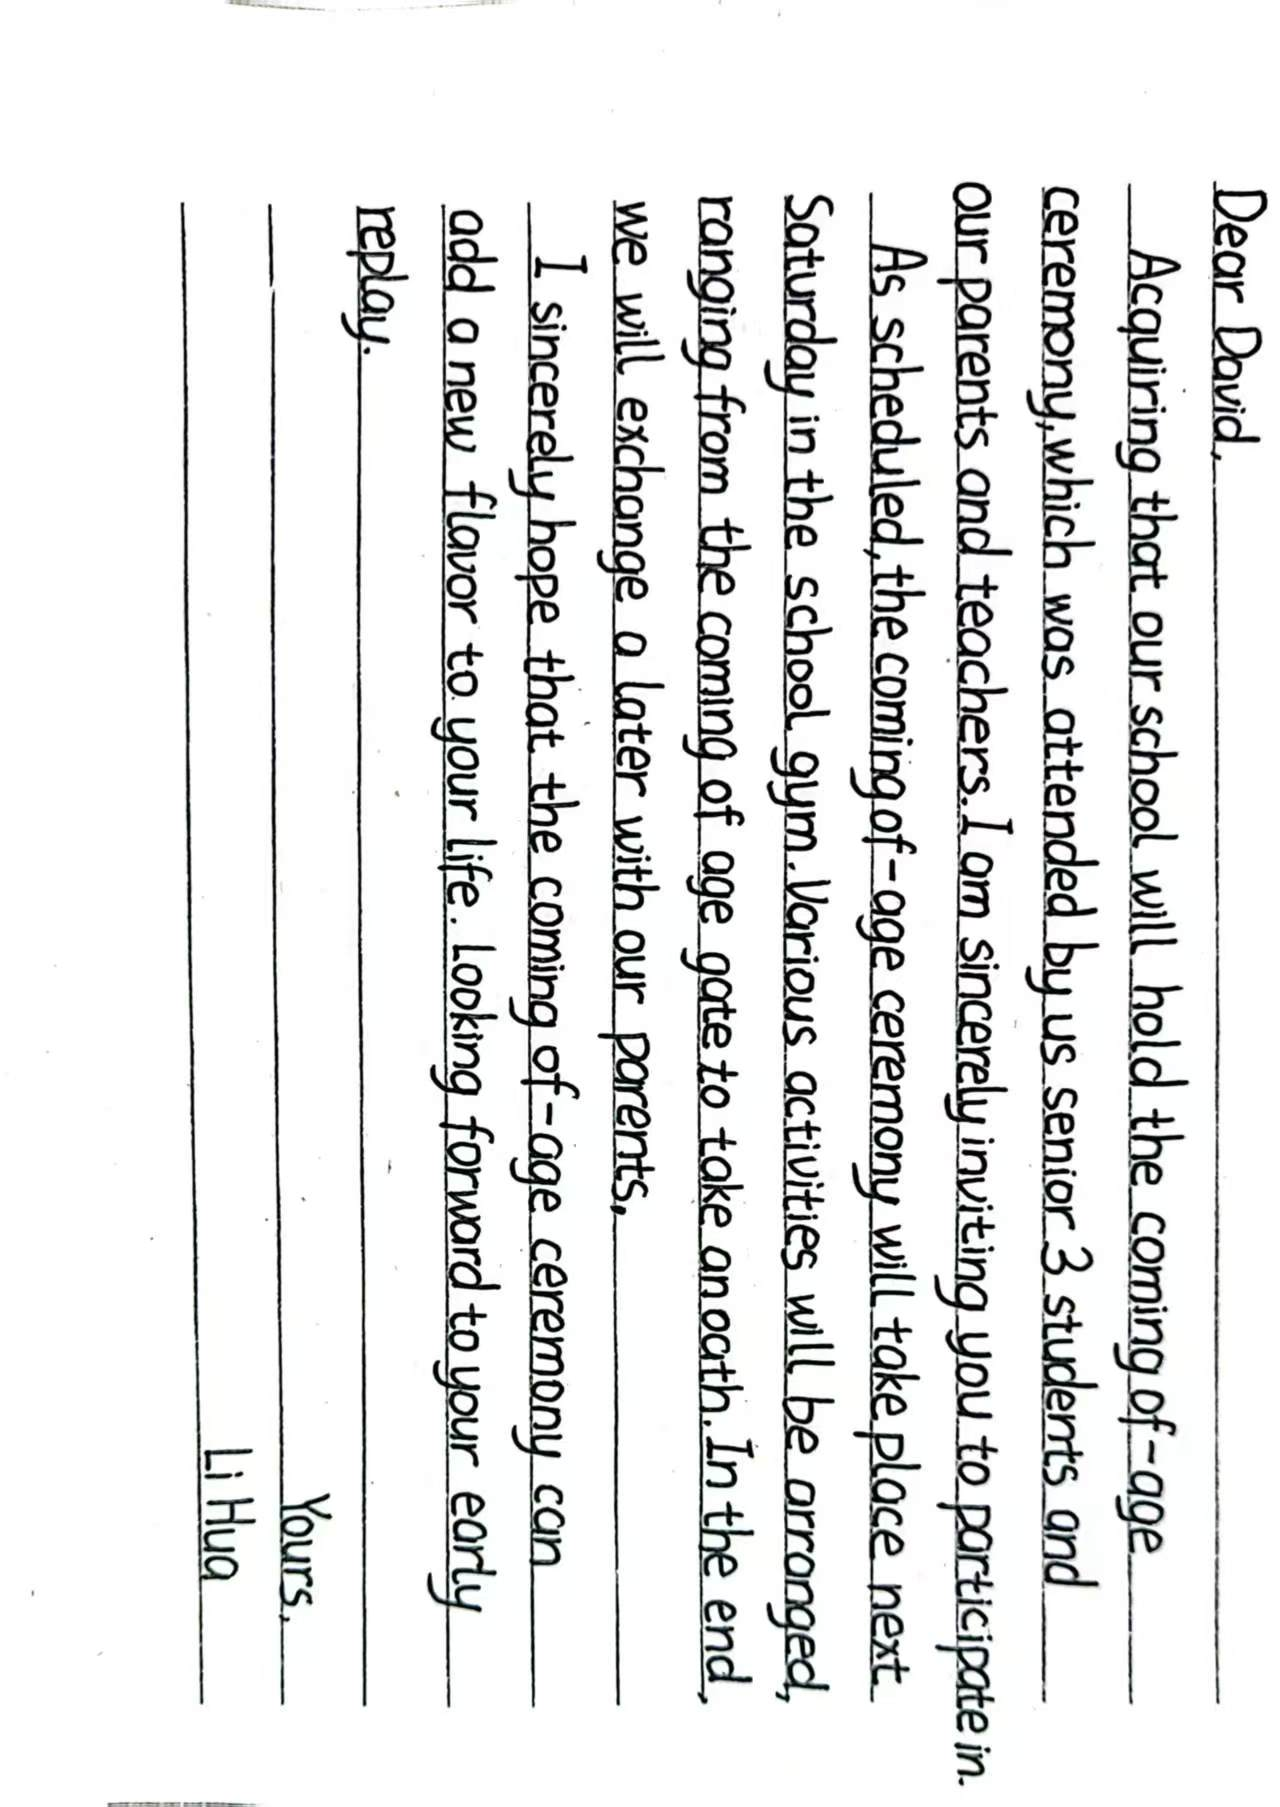 Dear David,
Acquiring that our school will hold the coming of-age
ceremony, which was attended by us senior 3 students and
our parents and teachers. I am sincerely inviting you to participate in.
As scheduled, the coming of-age ceremony will take place next
Saturday in the school gym. Various activities will be arranged,
ranging from the coming of age gate to take an oath. In the end,
we will exchange a later with our parents.
I sincerely hope that the coming of-age ceremony can
add a new flavor to your life. Looking forward to your early
replay.
Yours,
Li Hua